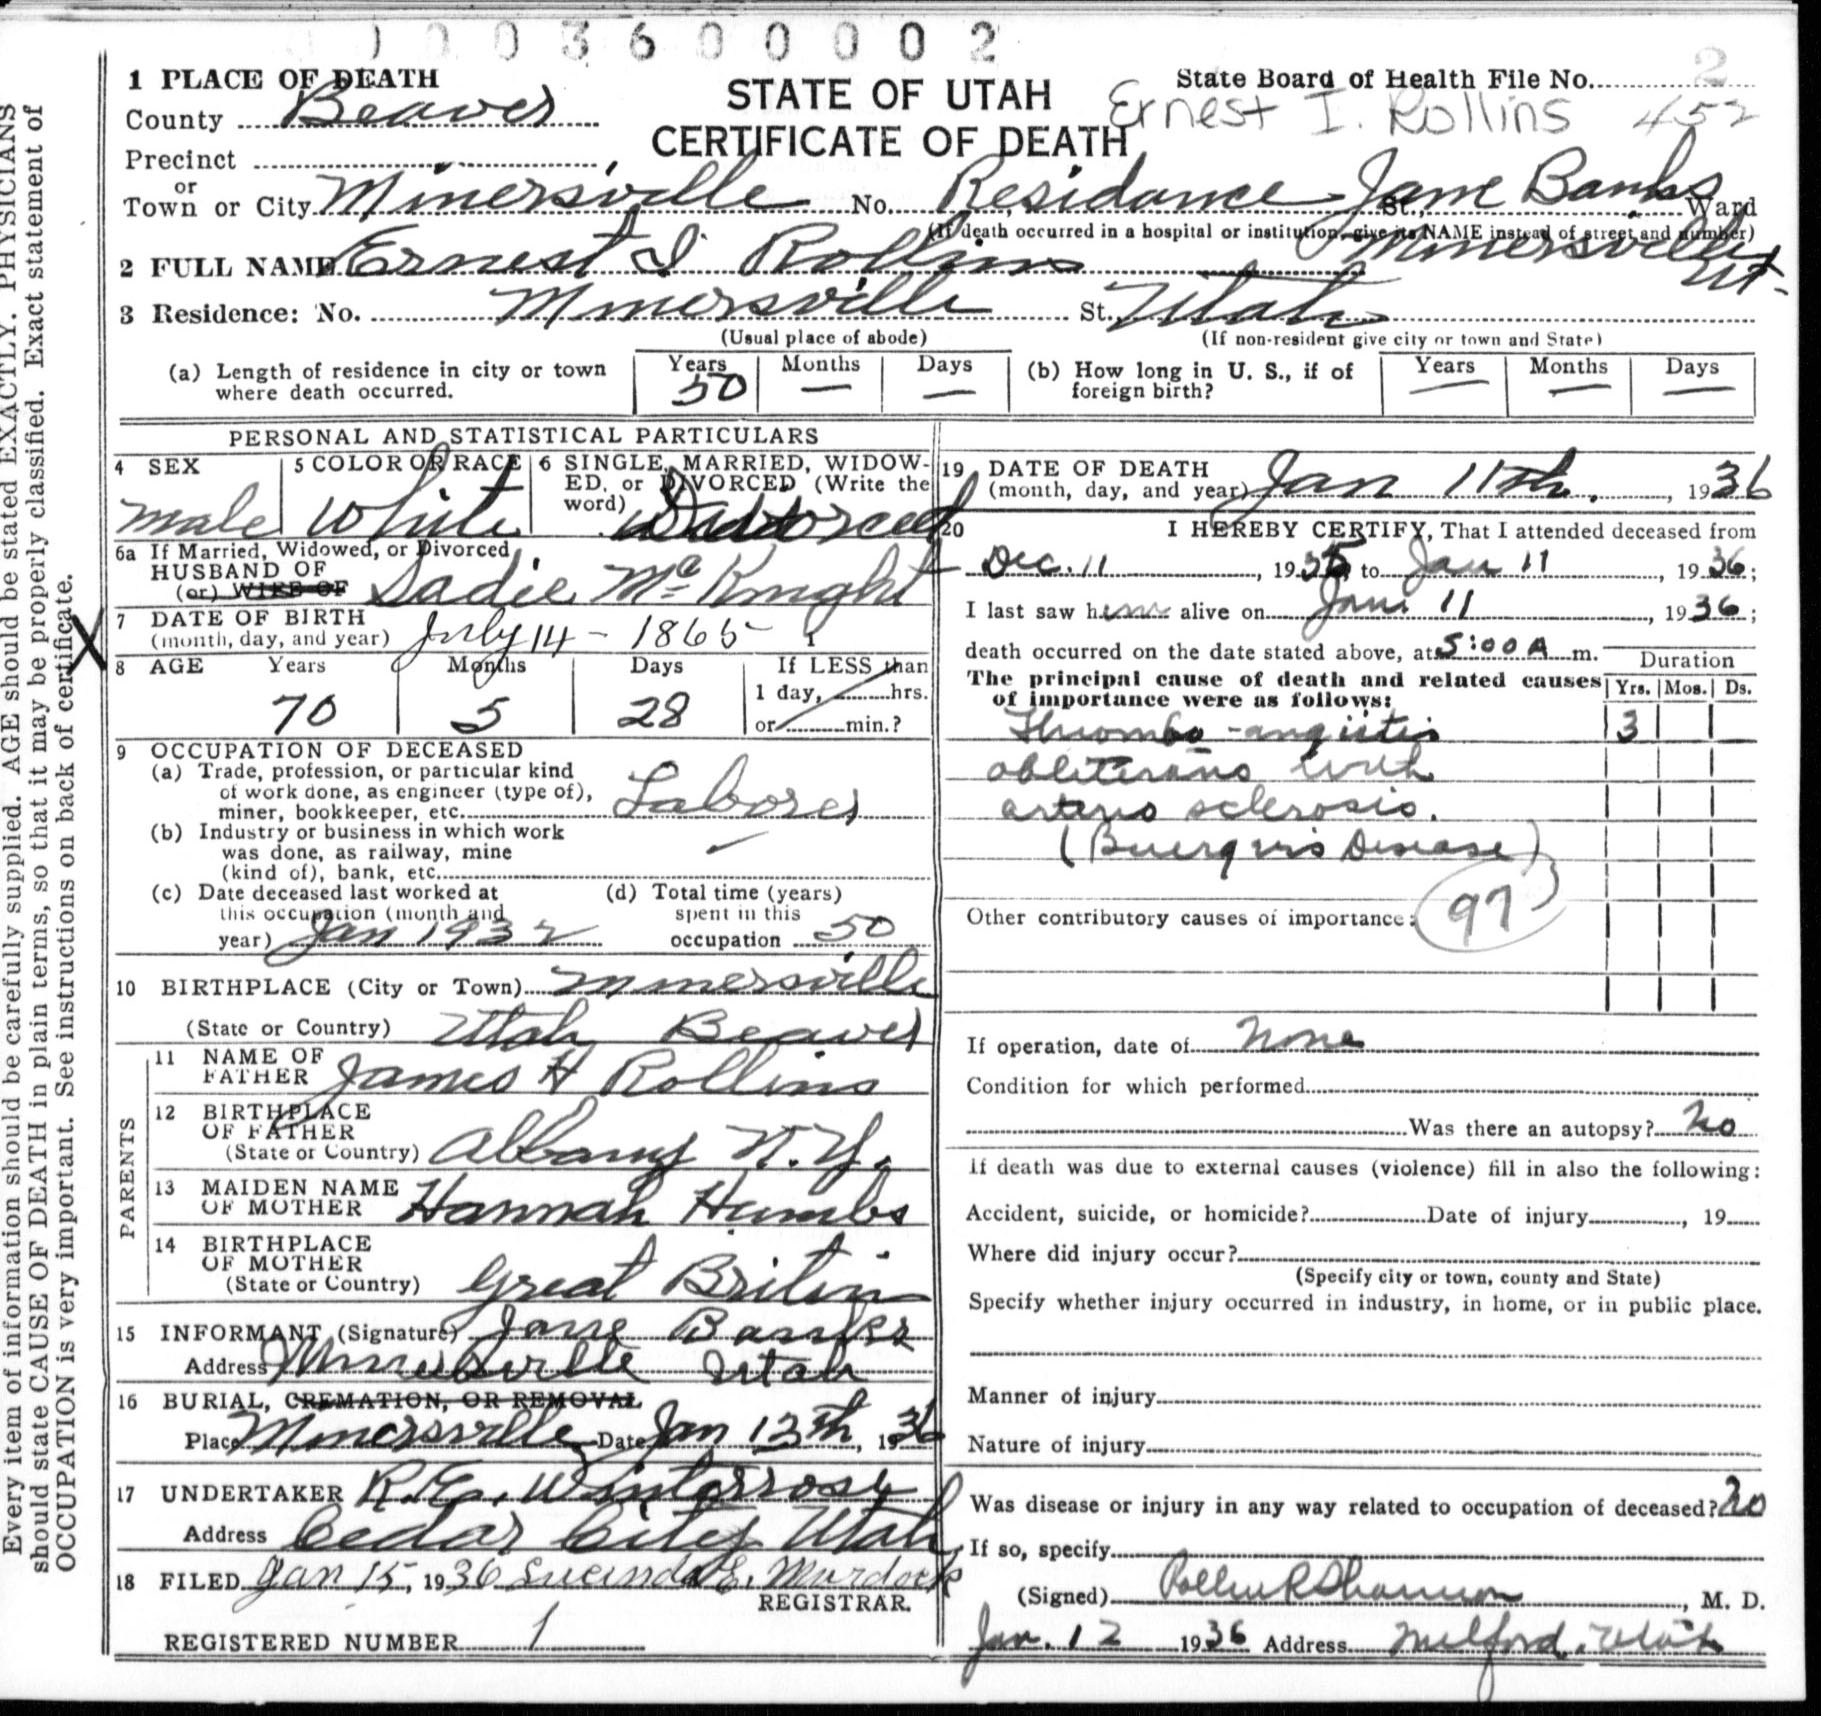 0 0 0 3 6 0 0 0 0 2
1 PLACE OF DEATH
STATE OF UTAH
CERTIFICATE OF DEATH
State Board of Health File No. 2
Ernest I. Rollins 452
County Beaver
Precinct
or
Town or City Minersville No. Residance Jane Banks St., Ward
(If death occurred in a hospital or institution, give its NAME instead of street and number)
Minersville Ut.
2 FULL NAME Ernest I Rollins
3 Residence: No. Minersville St. Utah
(Usual place of abode) (If non-resident give city or town and State)
(a) Length of residence in city or town where death occurred. Years 50 Months — Days —
(b) How long in U. S., if of foreign birth? Years — Months — Days —
PERSONAL AND STATISTICAL PARTICULARS
4 SEX male
5 COLOR OR RACE White
6 SINGLE, MARRIED, WIDOW-
ED, or DIVORCED (Write the
word) Divorced
6a If Married, Widowed, or Divorced
HUSBAND OF
(or) WIFE OF Sadie McKnight
7 DATE OF BIRTH
(month, day, and year) July 14 - 1865
8 AGE Years Months Days If LESS than
70 5 28 1 day, hrs.
or min.?
9 OCCUPATION OF DECEASED
(a) Trade, profession, or particular kind
of work done, as engineer (type of),
miner, bookkeeper, etc. Laborer
(b) Industry or business in which work
was done, as railway, mine
(kind of), bank, etc.
(c) Date deceased last worked at
this occupation (month and
year) Jan 1932
(d) Total time (years)
spent in this
occupation 50
10 BIRTHPLACE (City or Town) Minersville
(State or Country) Utah Beaver
PARENTS
11 NAME OF
FATHER James H Rollins
12 BIRTHPLACE
OF FATHER
(State or Country) Albany N.Y.
13 MAIDEN NAME
OF MOTHER Hannah Humbs
14 BIRTHPLACE
OF MOTHER
(State or Country) Great Britin
15 INFORMANT (Signature) Jane Banks
Address Minersville Utah
16 BURIAL, CREMATION, OR REMOVAL
Place Minersville Date Jan 13th, 1936
17 UNDERTAKER R.E. Winterrose
Address Cedar City Utah
18 FILED Jan 15, 1936 Lucinda E. Murdock
REGISTRAR.
REGISTERED NUMBER 1
19 DATE OF DEATH
(month, day, and year) Jan 11th, 1936
20 I HEREBY CERTIFY, That I attended deceased from
Dec. 11, 1935, to Jan 11, 1936;
I last saw him alive on Jan. 11, 1936;
death occurred on the date stated above, at 5:00 A m.
The principal cause of death and related causes
of importance were as follows:
Duration
Yrs. Mos. Ds.
Thrombo-angiitis 3
obliterans with
arterio sclerosis.
(Buerguis Disease)
Other contributory causes of importance: 97
If operation, date of None
Condition for which performed
Was there an autopsy? No
If death was due to external causes (violence) fill in also the following:
Accident, suicide, or homicide? Date of injury , 19
Where did injury occur?
(Specify city or town, county and State)
Specify whether injury occurred in industry, in home, or in public place.
Manner of injury
Nature of injury
Was disease or injury in any way related to occupation of deceased? No
If so, specify
(Signed) Rollin R Shannon, M. D.
Jan. 12 1936 Address Milford, Utah
Every item of information should be carefully supplied. AGE should be stated EXACTLY. PHYSICIANS
should state CAUSE OF DEATH in plain terms, so that it may be properly classified. Exact statement of
OCCUPATION is very important. See instructions on back of certificate.
X